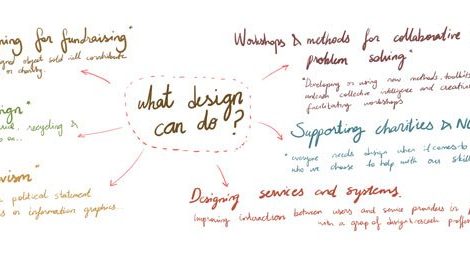 ning for fundraising"
object sold will contribute
charity.
sign"
recycling &
vism"
political statement
or information graphics...
what design
can do?
Workshops & methods for collaborative
problem solving"
"Developing or using new methods, toolkits
collective intelligence and
facilitating workshops
Supporting charities & N
"everyone needs design when it comes to
who we choose to help with our skill
Designing services and systems.
improving interaction between users and service providers in
with a group of design research